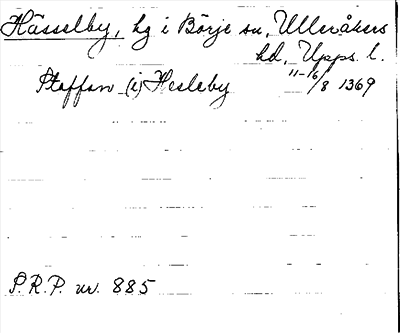 Hässelby, hg i Börje sn, Ulleråkers
hd, Upps. l.
Staffan (i) Hesleby 11-16/8 1369
S.R.P. nr. 885